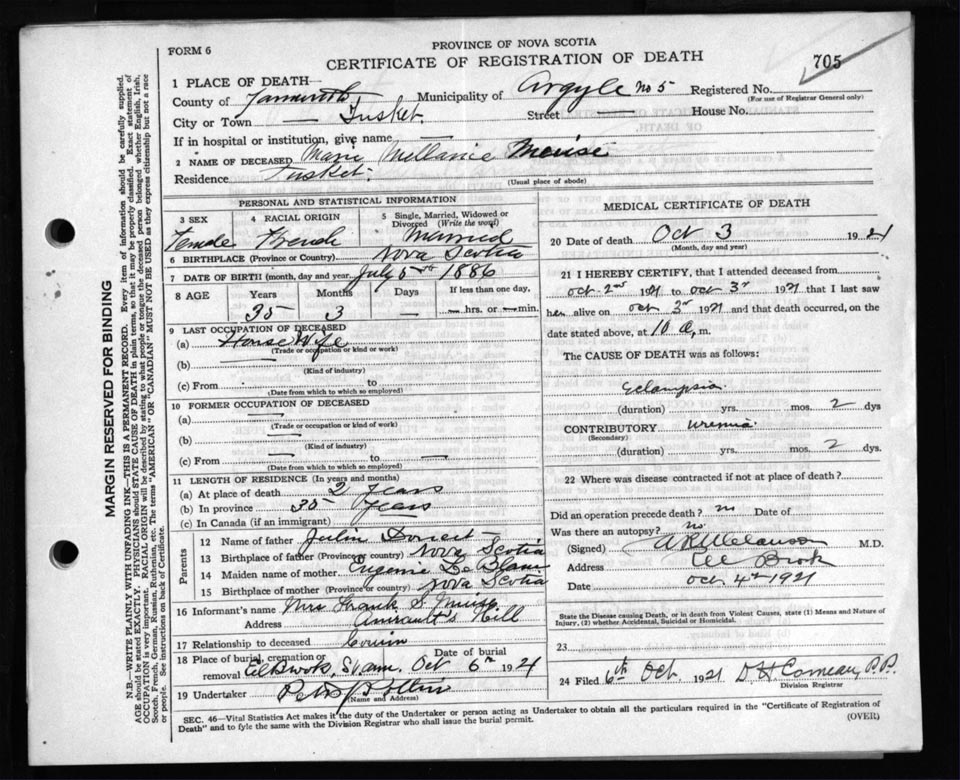 FORM 6
PROVINCE OF NOVA SCOTIA
CERTIFICATE OF REGISTRATION OF DEATH
705
1 PLACE OF DEATH—
County of Yarmouth Municipality of Argyle No 5 Registered No.
(For use of Registrar General only)
City or Town — Tusket Street — House No.
If in hospital or institution, give name —
2 NAME OF DECEASED Marie Mellanie Meuise
Residence Tusket.
(Usual place of abode)
PERSONAL AND STATISTICAL INFORMATION
3 SEX 4 RACIAL ORIGIN 5 Single, Married, Widowed or Divorced (Write the word)
Female French Married
6 BIRTHPLACE (Province or Country) Nova Scotia
7 DATE OF BIRTH (month, day and year) July 5th 1886
8 AGE Years Months Days If less than one day,
35 3 — hrs. or min.
9 LAST OCCUPATION OF DECEASED
(a) House Wife
(Trade or occupation or kind of work)
(b)
(Kind of industry)
(c) From to
(Date from which to which so employed)
10 FORMER OCCUPATION OF DECEASED
(a) —
(Trade or occupation or kind of work)
(b) —
(Kind of industry)
(c) From — to —
(Date from which to which so employed)
11 LENGTH OF RESIDENCE (In years and months)
(a) At place of death 2 Years
(b) In province 35 Years
(c) In Canada (if an immigrant)
Parents
12 Name of father Julin
13 Birthplace of father (Province or country) Nova Scotia
14 Maiden name of mother Eugenie
15 Birthplace of mother (Province or country) Nova Scotia
16 Informant's name Mrs Frank S. Muise
Address Amirault's Hill
17 Relationship to deceased Cousin
18 Place of burial, cremation or removal Date of burial
Oct 6th 1921
19 Undertaker
(Name and Address)
MEDICAL CERTIFICATE OF DEATH
20 Date of death Oct 3 1921
(Month, day and year)
21 I HEREBY CERTIFY, that I attended deceased from
Oct 2nd 1921 to Oct 3rd 1921 that I last saw
her alive on Oct 3rd 1921 and that death occurred, on the
date stated above, at 10 a. m.
The CAUSE OF DEATH was as follows:
Eclampsia
(duration) yrs. mos. 2 dys
CONTRIBUTORY Uremia
(Secondary)
(duration) yrs. mos. 2 dys.
22 Where was disease contracted if not at place of death?
Did an operation precede death? no Date of
Was there an autopsy? no
(Signed) M.D.
Address Eel Brook
Date Oct 4th 1921
State the Disease causing Death, or in death from Violent Causes, state (1) Means and Nature of Injury, (2) whether Accidental, Suicidal or Homicidal.
23
24 Filed 6th Oct. 1921 D. H. Comeau, P.P.
Division Registrar
SEC. 46—Vital Statistics Act makes it the duty of the Undertaker or person acting as Undertaker to obtain all the particulars required in the "Certificate of Registration of
Death" and to fyle the same with the Division Registrar who shall issue the burial permit.
(OVER)
MARGIN RESERVED FOR BINDING
N.B.—WRITE PLAINLY WITH UNFADING INK—THIS IS A PERMANENT RECORD. Every item of information should be carefully supplied.
AGE should be stated EXACTLY. PHYSICIANS should STATE CAUSE OF DEATH in plain terms, so that it may be properly classified. Exact statement of
OCCUPATION is very important. RACIAL ORIGIN will be described by stating to what people or tongue the deceased person belonged whether English, Irish,
Scotch, French, German, Russian, Ruthenian, etc. The terms "AMERICAN" OR "CANADIAN" MUST NOT BE USED as they express citizenship but not a race
or people. See instructions on back of Certificate.